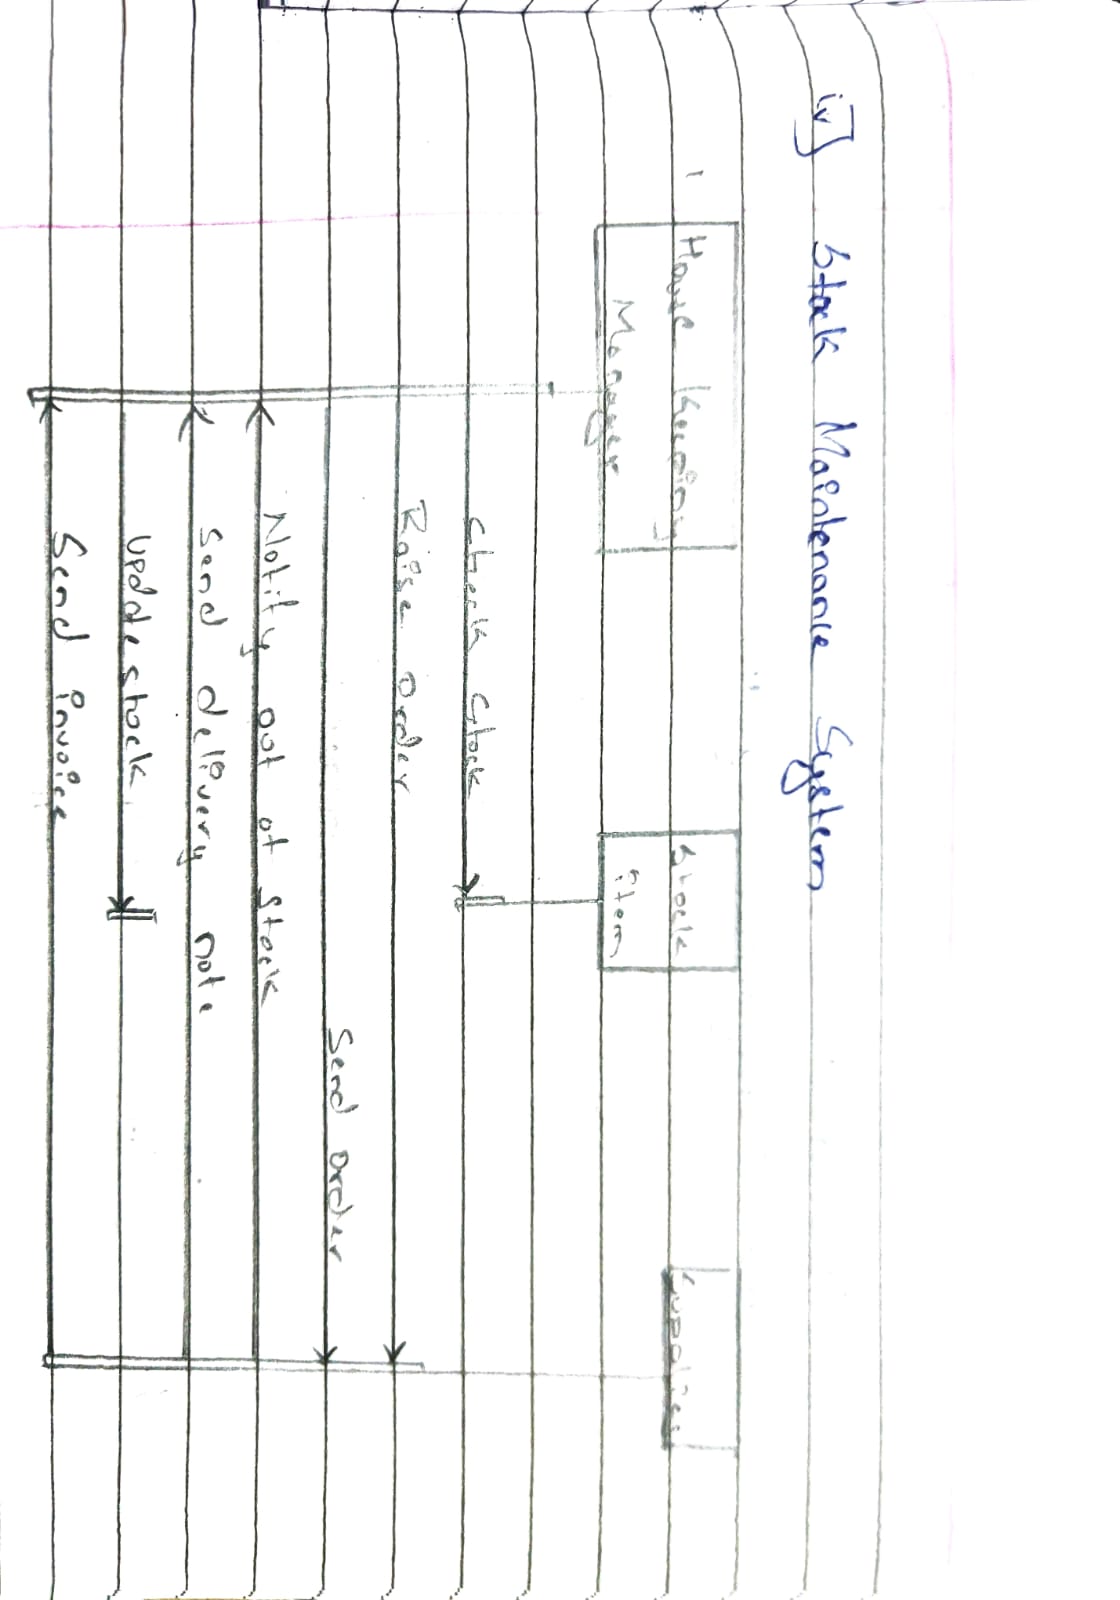 iv] Stock Maintenance System
House Keeping
Manager
Stock
item
Supplier
Check Stock
Raise Order
Send Order
Notify out of stock
Send delivery note
Update stock
Send invoice